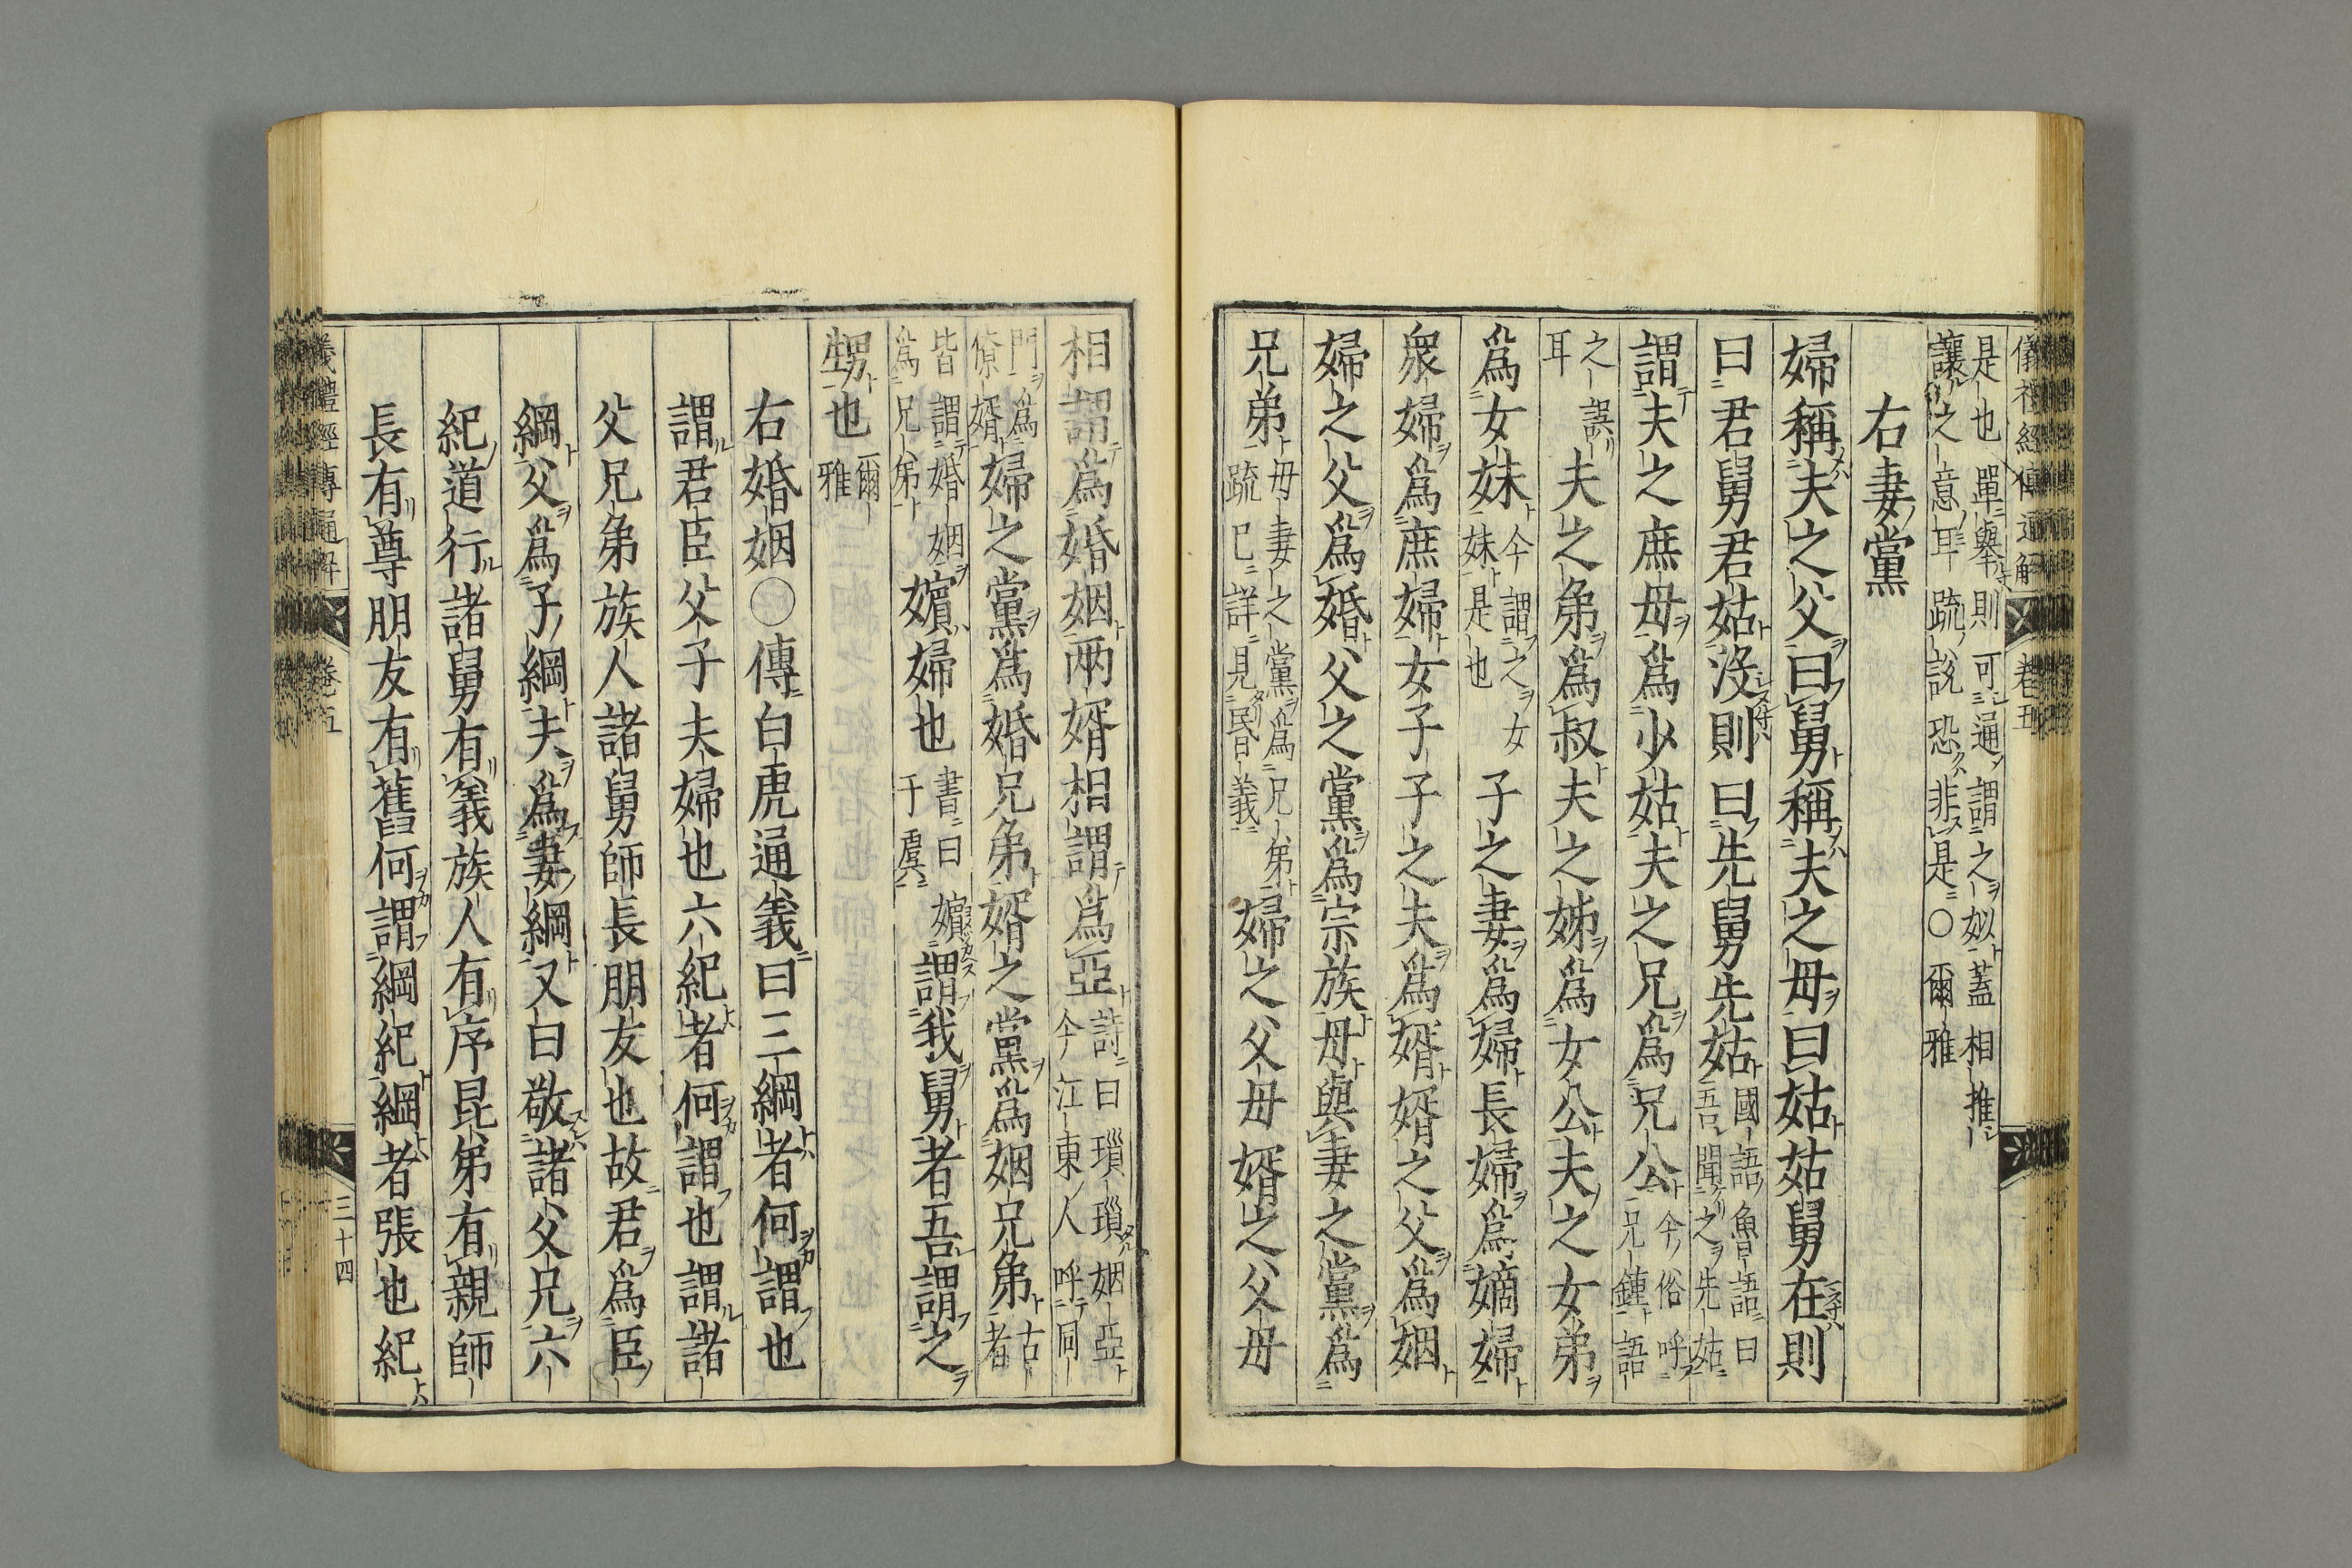 儀禮經傳通解 卷五
是也單舉則可通謂之姒蓋相推
讓之意耳疏說恐非是○爾雅
右妻黨
婦稱夫之父曰舅稱夫之母曰姑姑舅在則
曰君舅君姑沒則曰先舅先姑 國語魯語曰吾聞之先姑
謂夫之庶母爲少姑夫之兄爲兄公 今俗呼兄鍾語
之誤耳 夫之弟爲叔夫之姊爲女公夫之女弟
爲女妹 今謂之女妹是也 子之妻爲婦長婦爲嫡婦
衆婦爲庶婦女子子之夫爲婿婿之父爲姻
婦之父爲婚父之黨爲宗族母與妻之黨爲
兄弟 母妻之黨爲兄弟疏已詳見昏義 婦之父母婿之父母
相謂爲婚姻兩婿相謂爲亞 詩曰瑣瑣姻亞今江東人呼同
門爲僚婿 婦之黨爲婚兄弟婿之黨爲姻兄弟 古者
皆謂婚姻爲兄弟 嬪婦也 書曰嬪于虞 謂我舅者吾謂之
甥也 爾雅
右婚姻○傳白虎通義曰三綱者何謂也
謂君臣父子夫婦也六紀者何謂也謂諸
父兄弟族人諸舅師長朋友也故君爲臣
綱父爲子綱夫爲妻綱又曰敬諸父兄六
紀道行諸舅有義族人有序昆弟有親師
長有尊朋友有舊何謂綱紀綱者張也紀
儀禮經傳通解 卷五 三十四